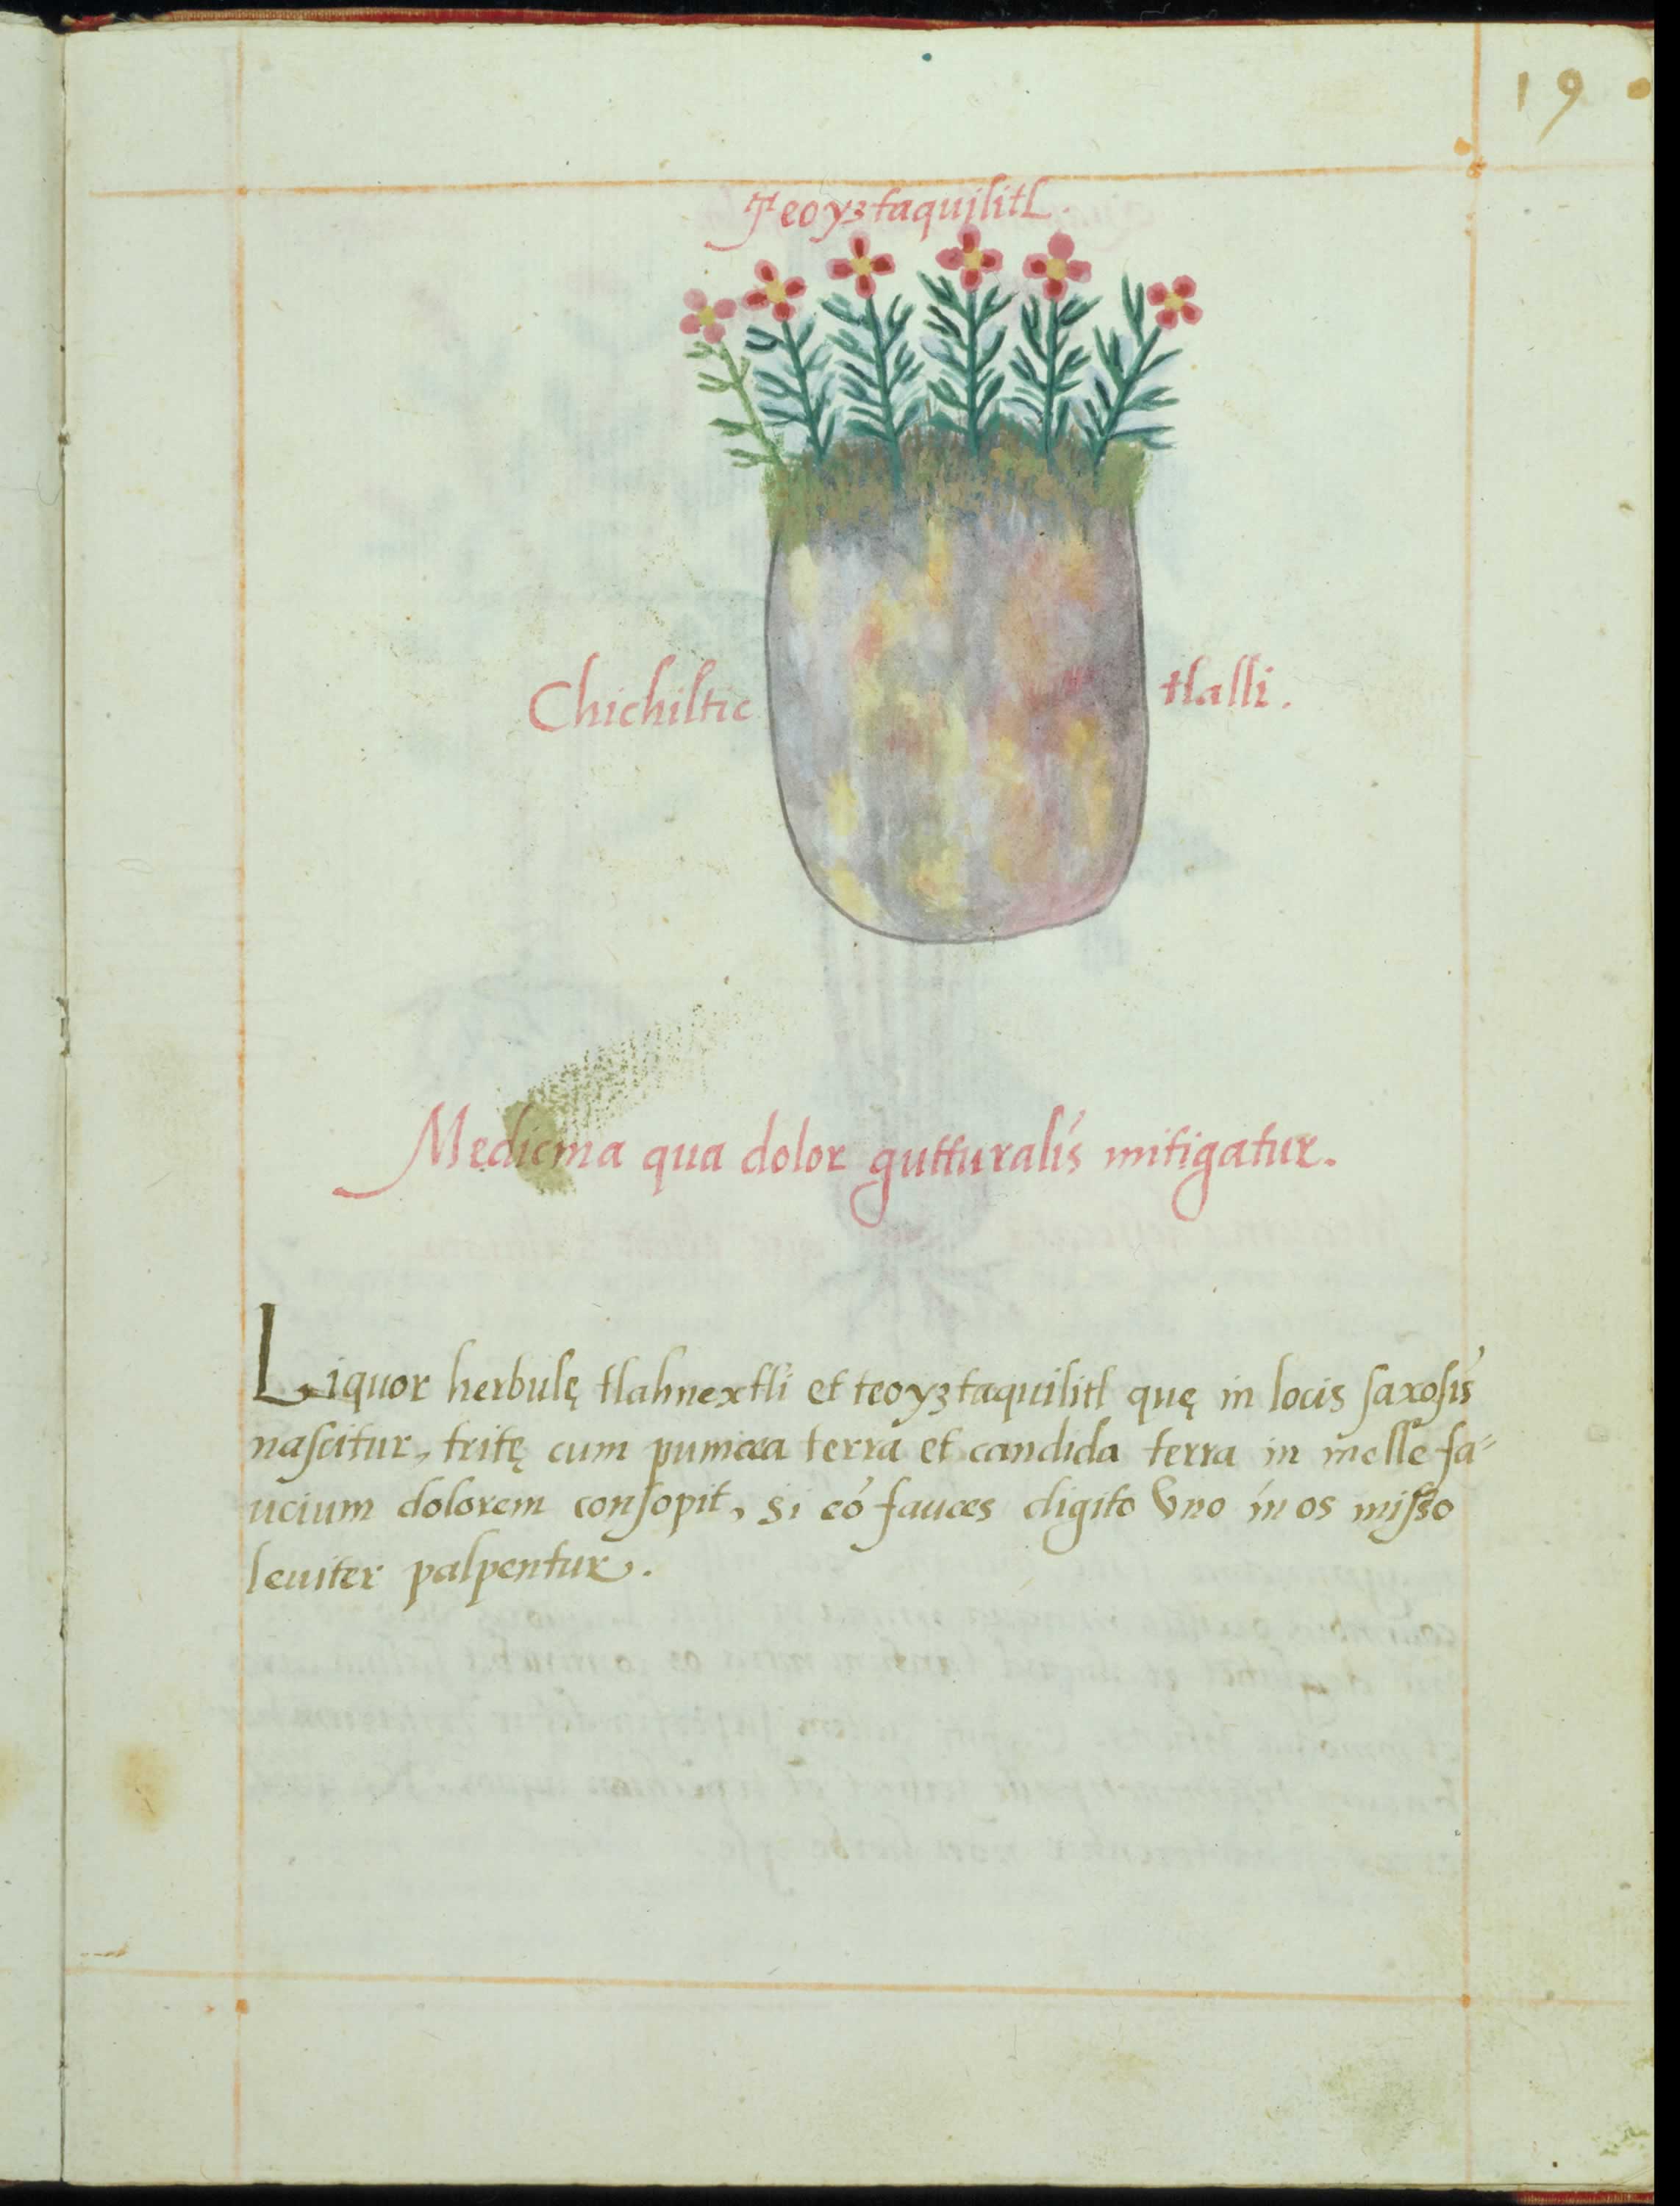 19
Teoyztaquilitl.
Chichiltic tlalli.
Medicina qua dolor gutturalis mitigatur.
Liquor herbulę tlahnextli et teoyztaquilitl quę in locis saxosis
nascitur, tritę cum pumicea terra et candida terra in melle fa-
ucium dolorem consopit, si eó fauces digito vno in os misso
leuiter palpentur.